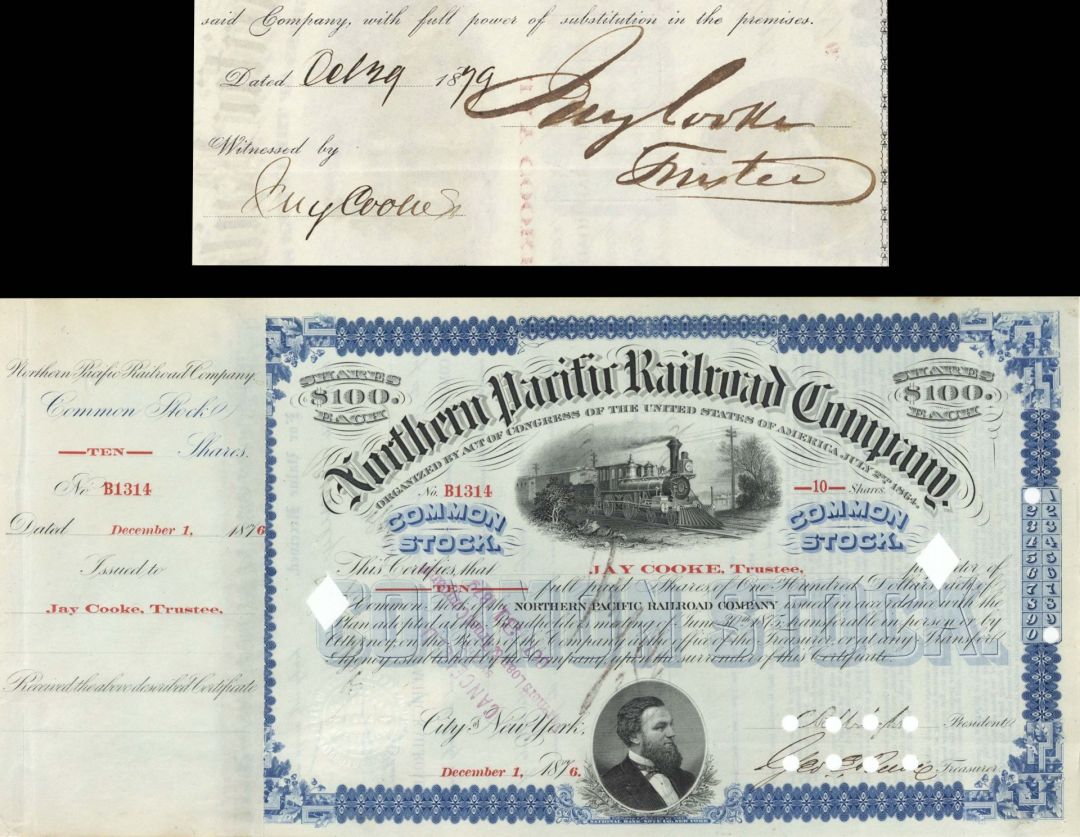 said Company, with full power of substitution in the premises.
Dated Oct 29 1879 Jay Cooke
Trustee
Witnessed by
Jay Cooke
Northern Pacific Railroad Company
Common Stock
TEN Shares.
No. B1314
Dated December 1, 1876
Issued to
Jay Cooke, Trustee,
Received the above described Certificate
SHARES $100. EACH
SHARES $100. EACH
Northern Pacific Railroad Company.
ORGANIZED BY ACT OF CONGRESS OF THE UNITED STATES OF AMERICA, JULY 2ND 1864.
No. B1314
10 Shares
COMMON STOCK.
COMMON STOCK.
This Certifies, that JAY COOKE, Trustee, of
TEN full paid Shares, of One Hundred Dollars each, of
Common Stock, of the NORTHERN PACIFIC RAILROAD COMPANY issued in accordance with the
Plan adopted at the meeting of June 30th 1875 transferable in person or by
Attorney, on the Books of the Company at the office of the Treasurer, or at any Transfer
Agency established by the Company, upon the surrender of this Certificate.
COMMON STOCK.
City of New York,
December 1, 1876.
President
Geo Treasurer
NATIONAL BANK NOTE CO. NEW YORK
1 2 3 4 5 6 7 8 9 0